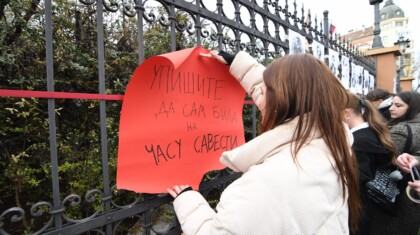 УПИШИТЕ
ДА САМ БИЛА
НА
ЧАСУ САВЕСТИ